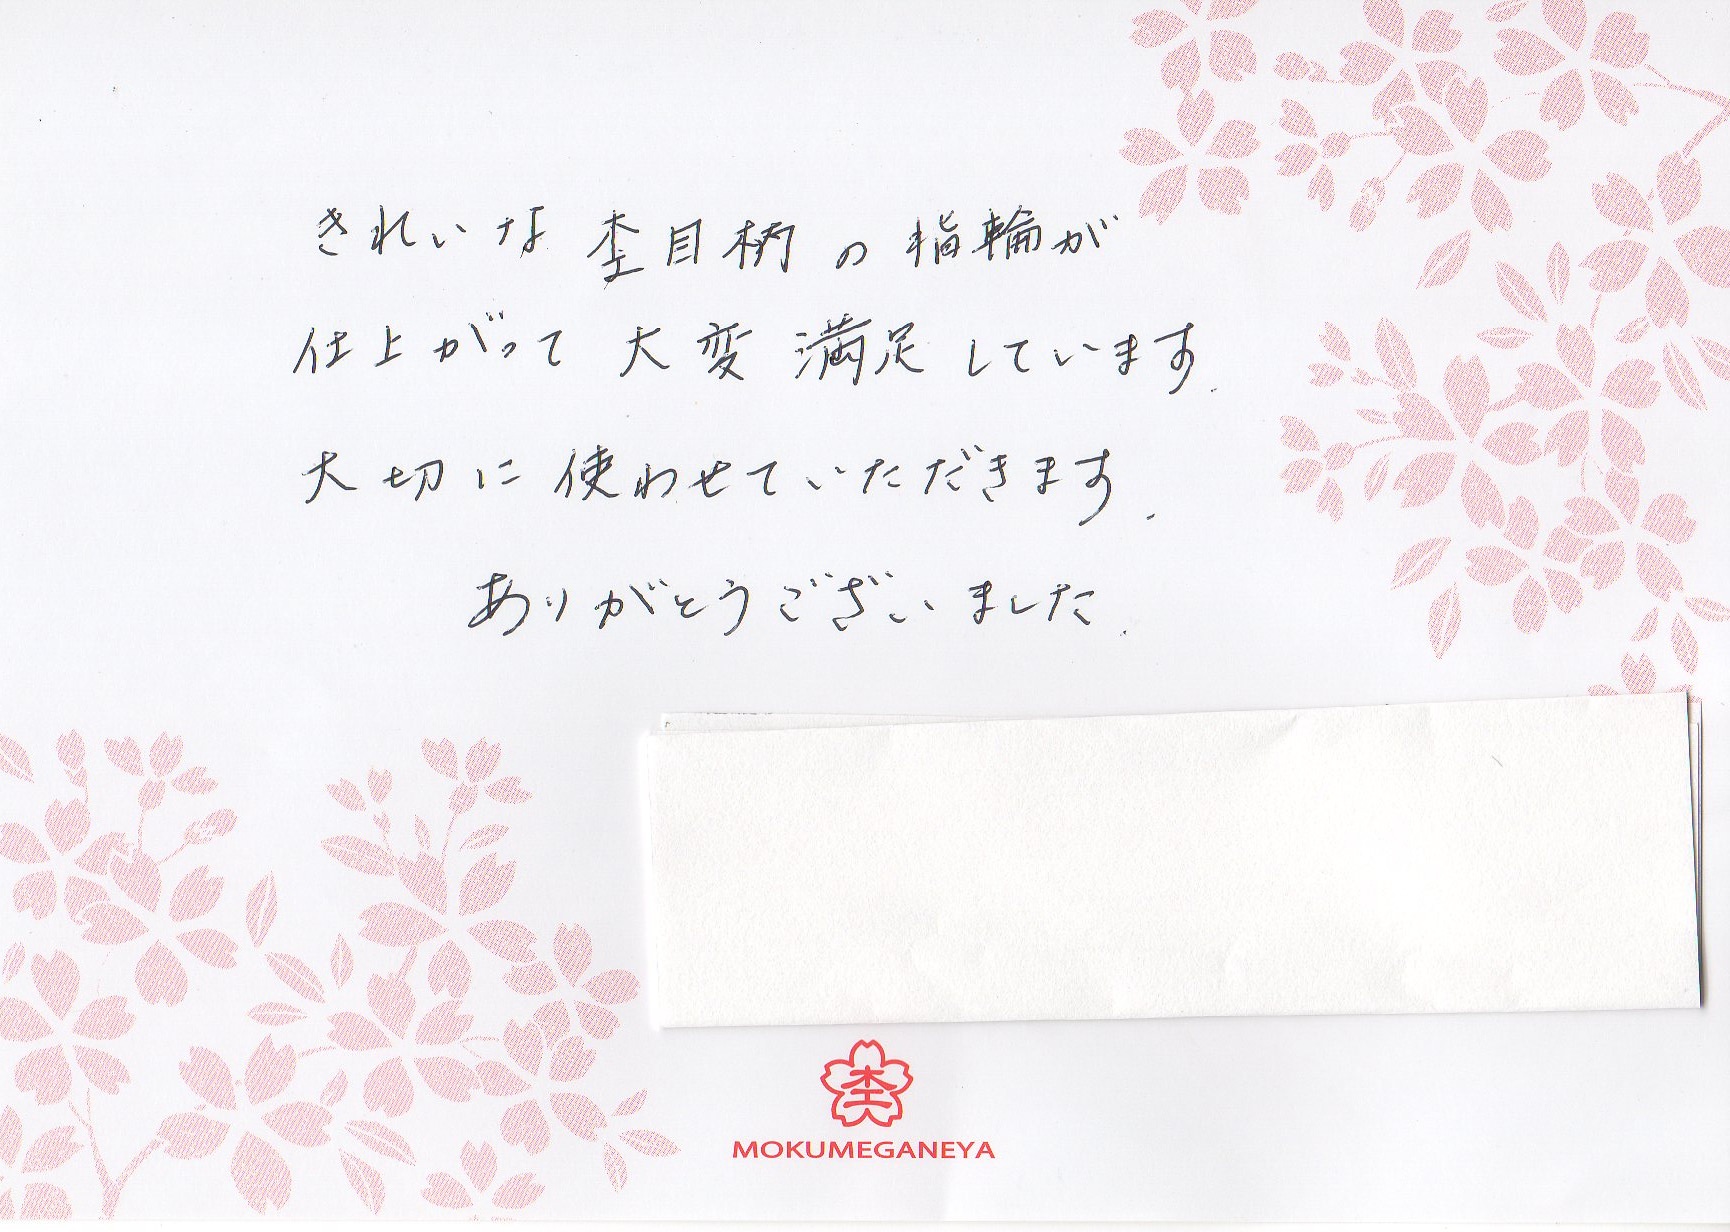 きれいな 杢目柄の指輪が
仕上がって大変満足しています.
大切に使わせていただきます.
ありがとうございました.
杢
MOKUMEGANEYA